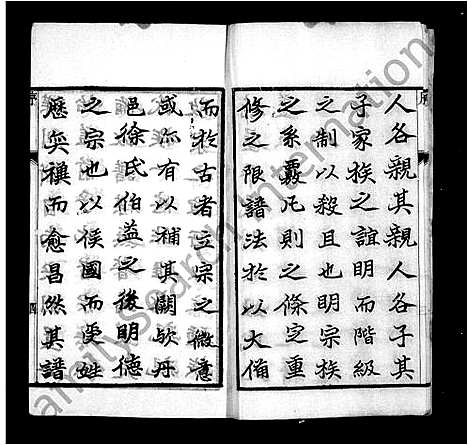 人各親其親人各子其
子家族之誼明而階級
之制以殺且也明宗族
之系覈凡則之條定重
修之限譜法於以大備
而於古者立宗之微意
或亦有以補其闕歟丹
邑徐氏伯益之後明德
之宗也以侯國而受姓
歷奕禩而愈昌然其譜
序
序
四
FamilySearch International